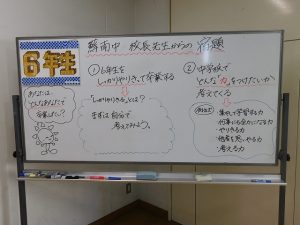 6年生
南中 校長先生からの宿題
① 6年生を
しっかりやりきって卒業する
「しっかりやりきる」とは？
まずは自分で
考えてみよう。
② 中学校で
どんな"力"をつけたいか
考えてくる
・集中して学習する力
・何事にも全力になる力
・やりきる力
・他者を思いやる力
・考える力
あなたは、
どんなあなたで
卒業したい？